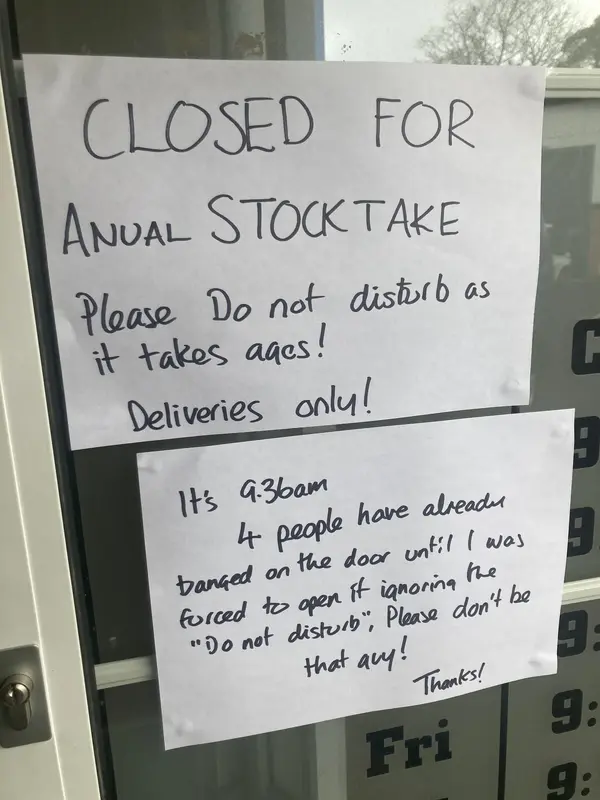 CLOSED FOR
ANUAL STOCKTAKE
Please Do not disturb as
it takes ages!
Deliveries only!
It's 9.36am
4 people have already
banged on the door until I was
forced to open it ignoring the
"Do not disturb". Please don't be
that guy!
Thanks!
C
9
9
9:
Fri
9:
9: